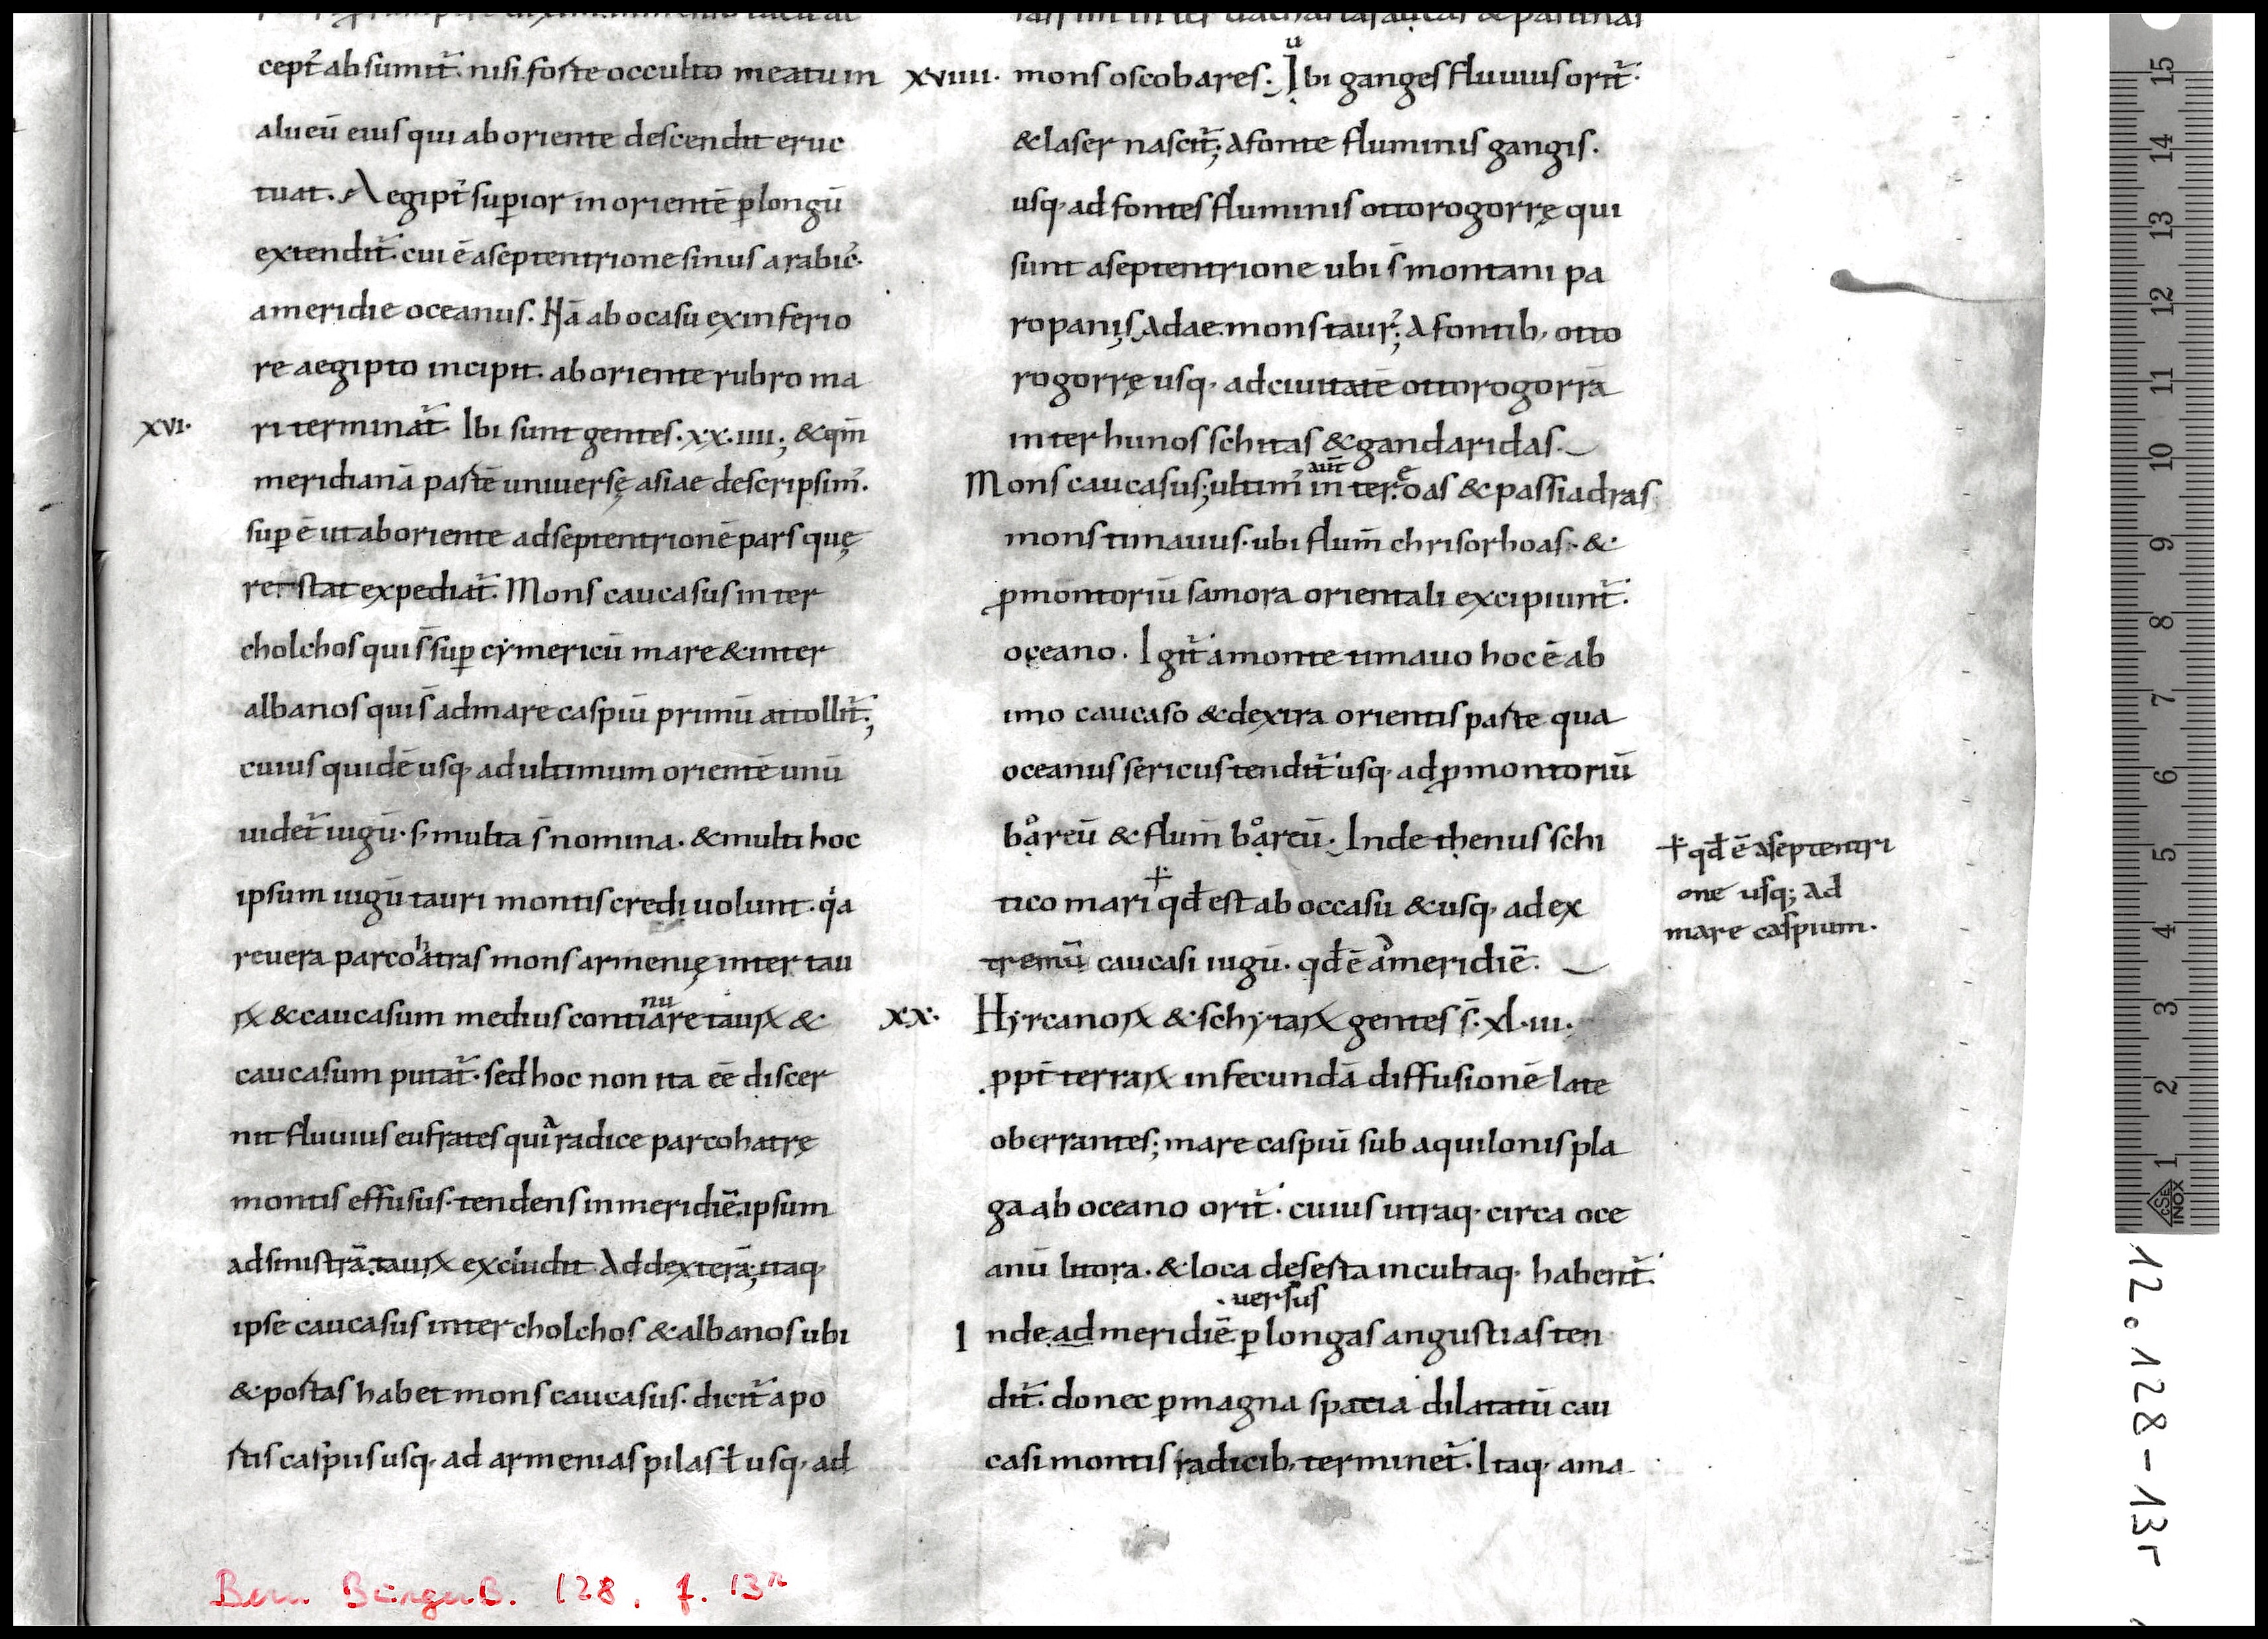 cept᷒ absumit᷑. nisi. forte occulto meatu in
alueū eius qui ab oriente descendit eruc
tuat. Aegipt᷒ sup̄ior in orientē p̱ longū
extendit᷑. cui ē a septentrione sinus arabic᷒.
a meridie oceanus. Nā ab ocasu ex inferio
re aegipto incipit. ab oriente rubro ma
xvi. ri terminat᷑. Ibi sunt gentes .xx.iiii; & qm̄
meridianā partē uniuersę asiae descripsim᷒.
sup̱ ē ut ab oriente ad septentrionē pars quę
restat expediat᷑. Mons caucasus inter
cholchos qui s̄ sup̱ cymericū mare & inter
albanos qui s̄ ad mare caspiū primū attollit᷑;
cuius quidē usq. ad ultimum orientē unū
uidet᷑ iugū. s; multa s̄ nomina. & multi hoc
ipsum iugū tauri montis credi uolunt. qa
reuera parcohatras mons armenię inter tau
rꝝ & caucasum medius continuare taurꝝ &
caucasum putat᷑. sed hoc non ita eē discer
nit fluuius eufrates qui a radice parcohatrę
montis effusus. tendens in meridiē. ipsum
ad sinistrā. taurꝝ excludit Ad dexterā; itaq.
ipse caucasus inter cholchos & albanos ubi
& portas habet mons caucasus. dicit᷑ a po
rtis caspiis usq. ad armenias pilas ł usq. ad
xviiii. mons oscobares. Ibi ganges fluuius orit᷑.
& laser nascit᷑; A fonte fluminis gangis.
usq. ad fontes fluminis ottorogorrę qui
sunt a septentrione ubi s̄ montani pa
ropanisadae. mons taur᷒; A fontib. otto
rogorrę usq. ad ciuitatē ottorogorrā
inter hunos schitas & gandaridas.
Mons caucasus; ultim᷒ aūt inter eoas & passiadras
mons timauus. ubi flum̄ chrisorhoas. &
ꝓmontoriū samora orientali excipiunt᷑.
oceano. Igit᷑ a monte timauo hoc ē ab
imo caucaso & dextra orientis parte qua
oceanus sericus tendit᷑ usq. ad ꝓmontoriū
boreū & flum̄ boreū. Inde thenus schi
tico mari qd̄ est ab occasu & usq. ad ex
tremū caucasi iugū. qd̄ ē a meridiē.
⁜ qd̄ ē a septentri
one usq; ad
mare caspium.
xx. Hyrcanorꝝ & schytarꝝ gentes s̄. xl.ii.
ꝓpt̄ terrarꝝ infecundā diffusionē late
oberrantes; mare caspiū sub aquilonis pla
ga ab oceano orit᷑. cuius utraq. circa oce
anū litora. & loca deserta incultaq. habent᷑.
uersus
Inde ad meridiē p̱ longas angustias ten
dit᷑. donec p̱ magna spacia dilatatū cau
casi montis radicib. terminet᷑. Itaq. a ma
Bern BürgerB. 128. f. 13r
15
14
13
12
11
10
9
8
7
6
5
4
3
2
1
CSE
INOX
12.128-13r